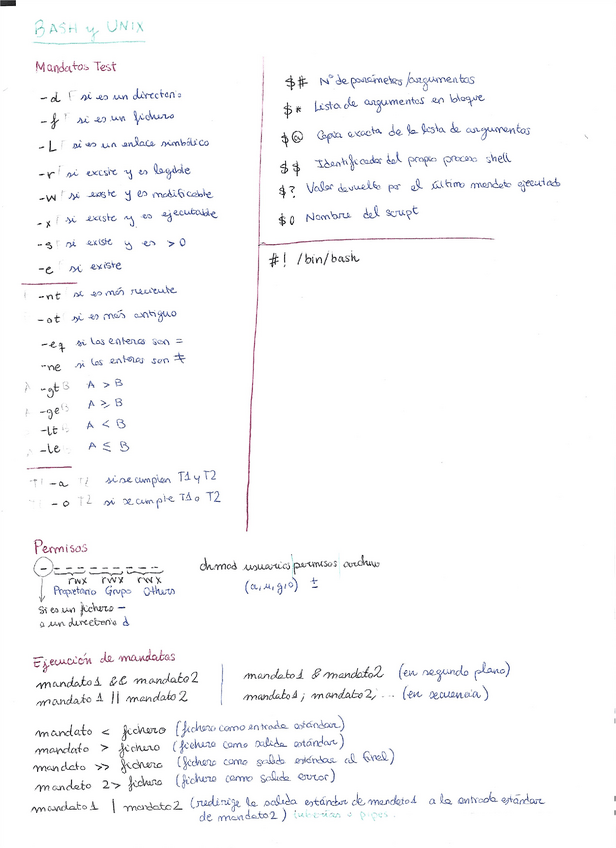 BASH y UNIX
Mandatos Test
-d f si es un directorio
-f f si es un fichero
-L f si es un enlace simbólico
-r f si existe y es legible
-w f si existe y es modificable
-x f si existe y es ejecutable
-s f si existe y es > 0
-e f si existe
-nt si es más reciente
-ot si es más antiguo
-eq si los enteros son =
-ne si los enteros son ≠
A -gt B A > B
A -ge B A ≥ B
-lt B A < B
-le A ≤ B
T1 -a T2 si se cumplen T1 y T2
T1 -o T2 si se cumple T1 o T2
$# Nº de parámetros/argumentos
$* Lista de argumentos en bloque
$@ Copia exacta de la lista de argumentos
$$ Identificador del propio proceso shell
$? Valor devuelto por el último mandato ejecutado
$0 Nombre del script
#! /bin/bash
Permisos
- --- --- ---
rwx rwx rwx
Propietario Grupo Others
Si es un fichero -
o un directorio d
chmod usuarios permisos archivo
(a,u,g,o) ±
Ejecución de mandatos
mandato1 && mandato2
mandato1 || mandato2
mandato1 & mandato2 (en segundo plano)
mandato1; mandato2; ... (en secuencia)
mandato < fichero (fichero como entrada estándar)
mandato > fichero (fichero como salida estándar)
mandato >> fichero (fichero como salida estándar al final)
mandato 2> fichero (fichero como salida error)
mandato1 | mandato2 (redirige la salida estándar de mandato1 a la entrada estándar
de mandato2) tuberías o pipes.